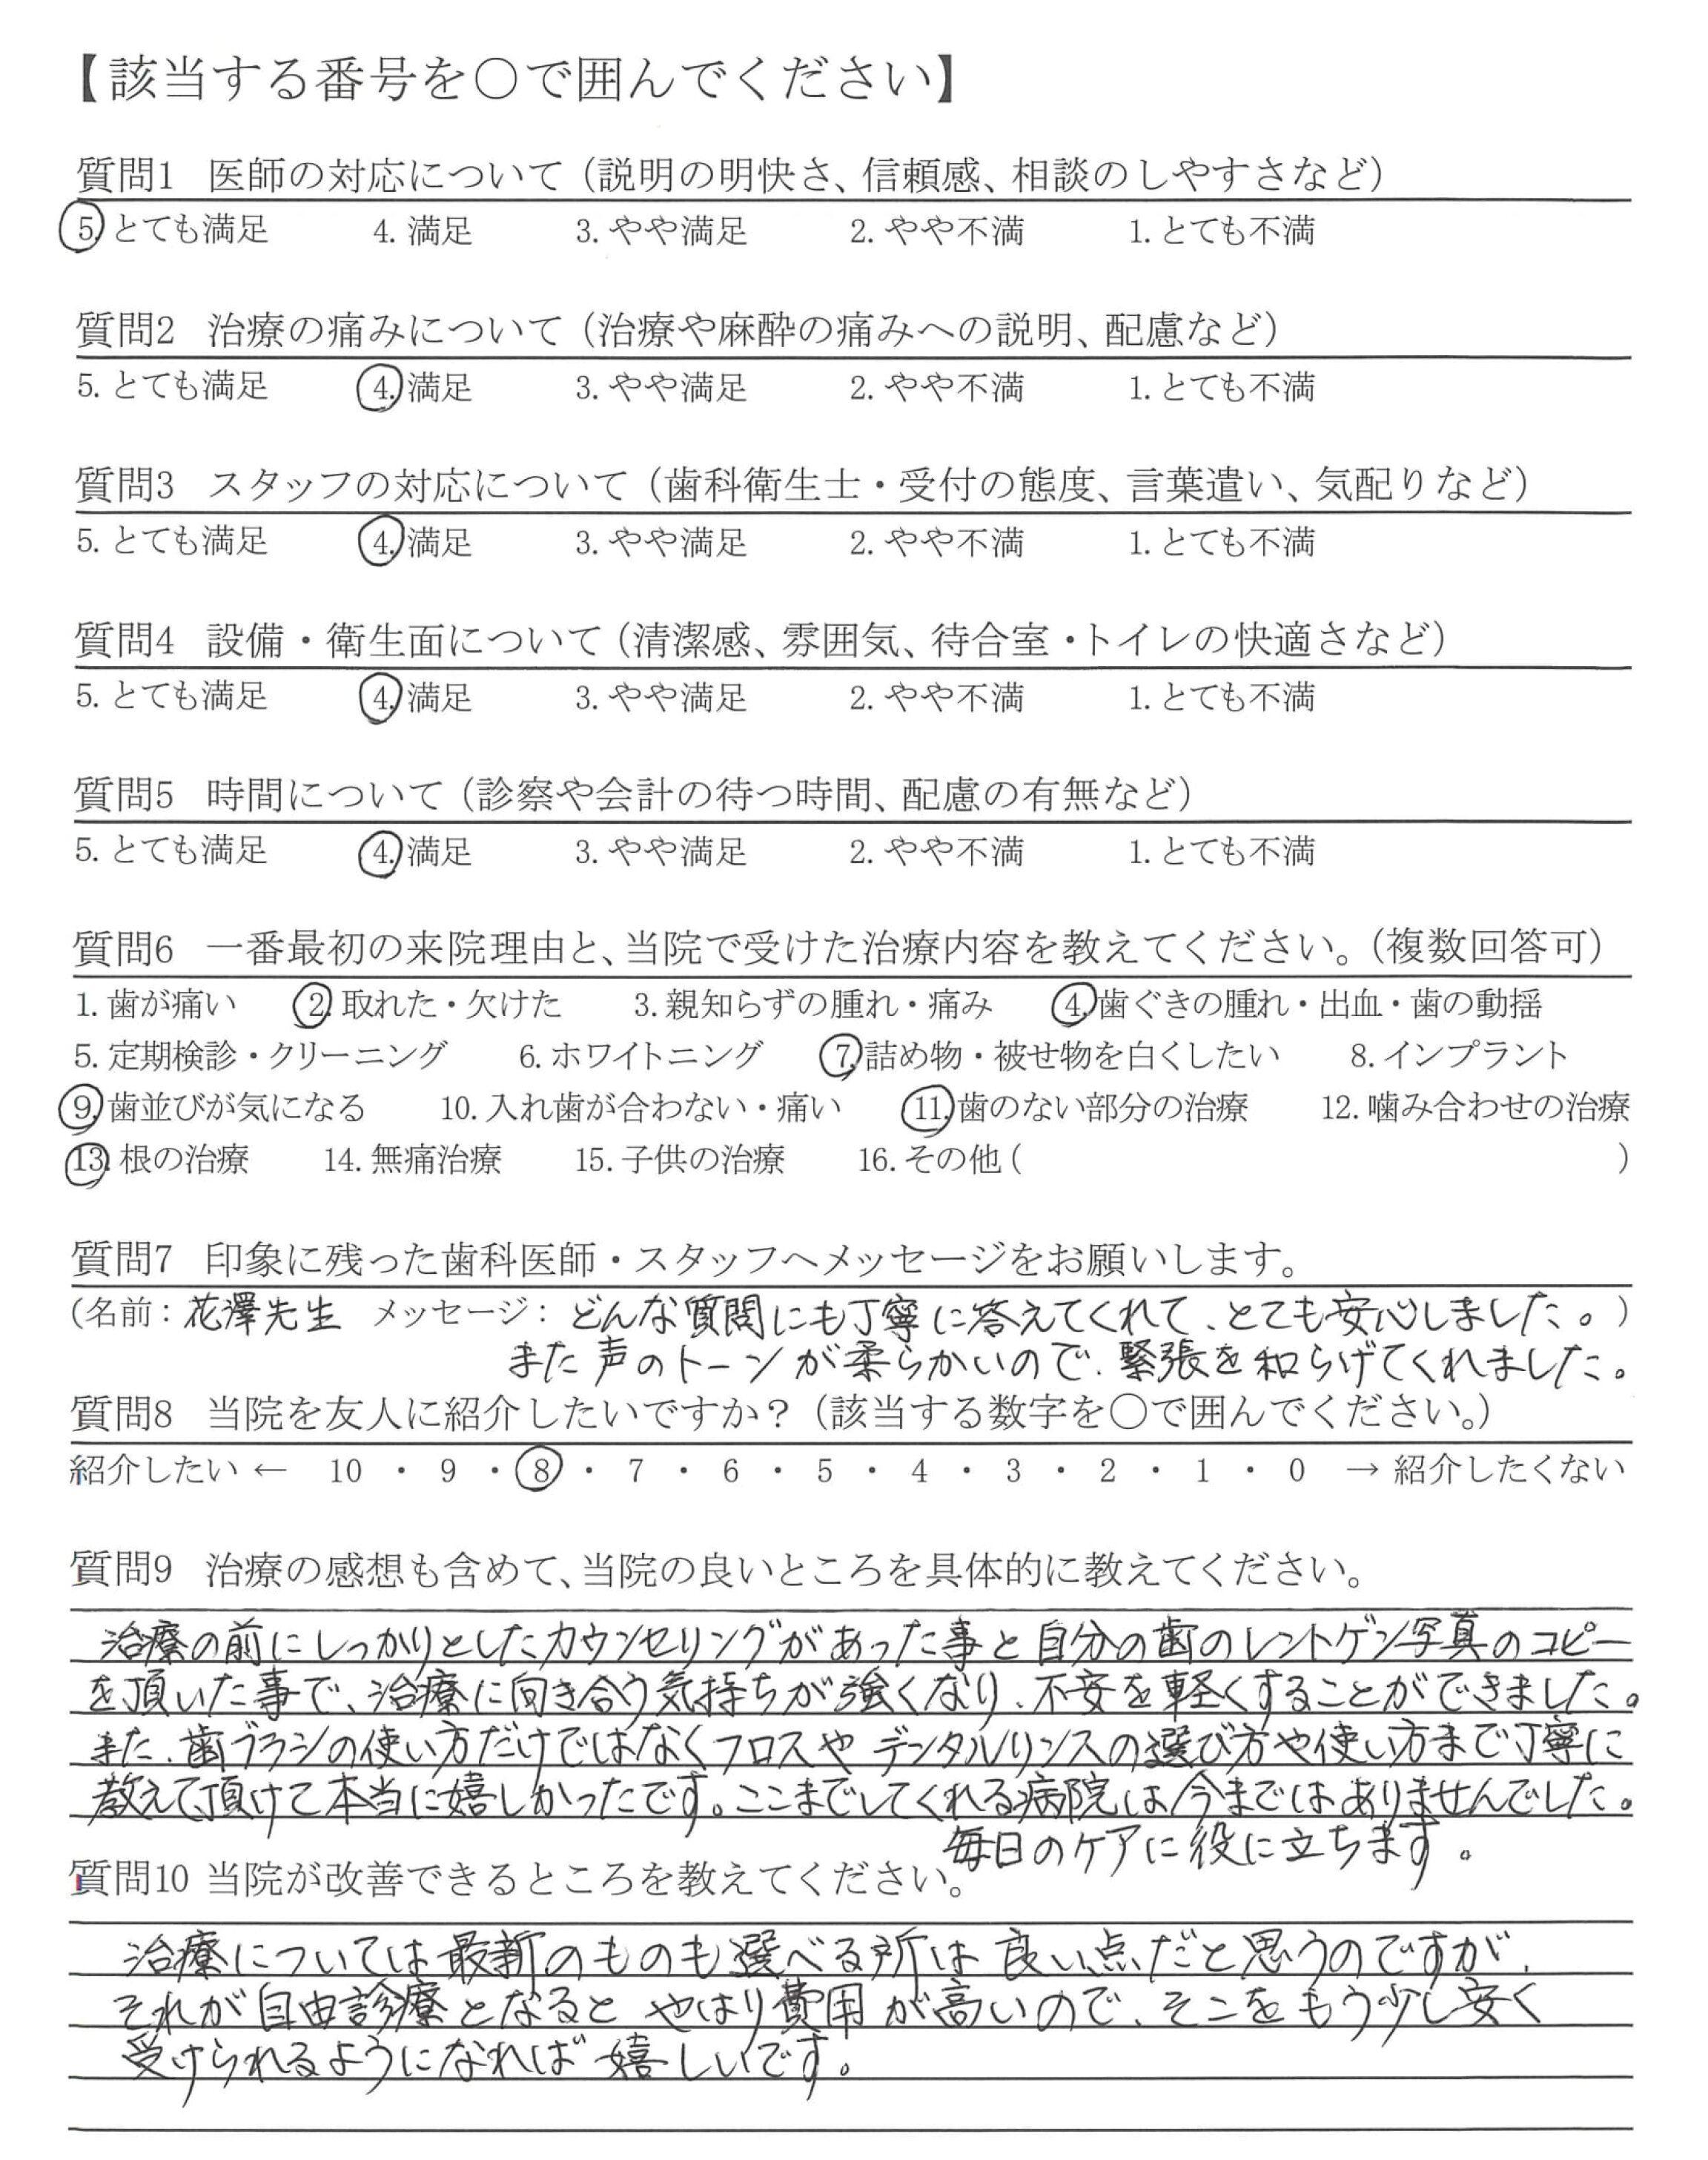 【該当する番号を〇で囲んでください】
質問1 医師の対応について（説明の明快さ、信頼感、相談のしやすさなど）
5. とても満足 4. 満足 3. やや満足 2. やや不満 1. とても不満
質問2 治療の痛みについて（治療や麻酔の痛みへの説明、配慮など）
5. とても満足 4. 満足 3. やや満足 2. やや不満 1. とても不満
質問3 スタッフの対応について（歯科衛生士・受付の態度、言葉遣い、気配りなど）
5. とても満足 4. 満足 3. やや満足 2. やや不満 1. とても不満
質問4 設備・衛生面について（清潔感、雰囲気、待合室・トイレの快適さなど）
5. とても満足 4. 満足 3. やや満足 2. やや不満 1. とても不満
質問5 時間について（診察や会計の待つ時間、配慮の有無など）
5. とても満足 4. 満足 3. やや満足 2. やや不満 1. とても不満
質問6 一番最初の来院理由と、当院で受けた治療内容を教えてください。（複数回答可）
1. 歯が痛い 2. 取れた・欠けた 3. 親知らずの腫れ・痛み 4. 歯ぐきの腫れ・出血・歯の動揺
5. 定期検診・クリーニング 6. ホワイトニング 7. 詰め物・被せ物を白くしたい 8. インプラント
9. 歯並びが気になる 10. 入れ歯が合わない・痛い 11. 歯のない部分の治療 12. 噛み合わせの治療
13. 根の治療 14. 無痛治療 15. 子供の治療 16. その他（ ）
質問7 印象に残った歯科医師・スタッフへメッセージをお願いします。
（名前：花澤先生 メッセージ：どんな質問にも丁寧に答えてくれて、とても安心しました。）
また声のトーンが柔らかいので、緊張を和らげてくれました。
質問8 当院を友人に紹介したいですか？（該当する数字を〇で囲んでください。）
紹介したい ← 10 ・ 9 ・ 8 ・ 7 ・ 6 ・ 5 ・ 4 ・ 3 ・ 2 ・ 1 ・ 0 → 紹介したくない
質問9 治療の感想も含めて、当院の良いところを具体的に教えてください。
治療の前にしっかりとしたカウンセリングがあった事と自分の歯のレントゲン写真のコピー
を頂いた事で、治療に向き合う気持ちが強くなり、不安を軽くすることができました。
また、歯ブラシの使い方だけではなくフロスやデンタルリンスの選び方や使い方まで丁寧に
教えて頂けて本当に嬉しかったです。ここまでしてくれる病院は今まではありませんでした。
毎日のケアに役に立ちます。
質問10 当院が改善できるところを教えてください。
治療については最新のものも選べる所は良い点だと思うのですが、
それが自由診療となるとやはり費用が高いので、そこをもう少し安く
受けられるようになれば嬉しいです。